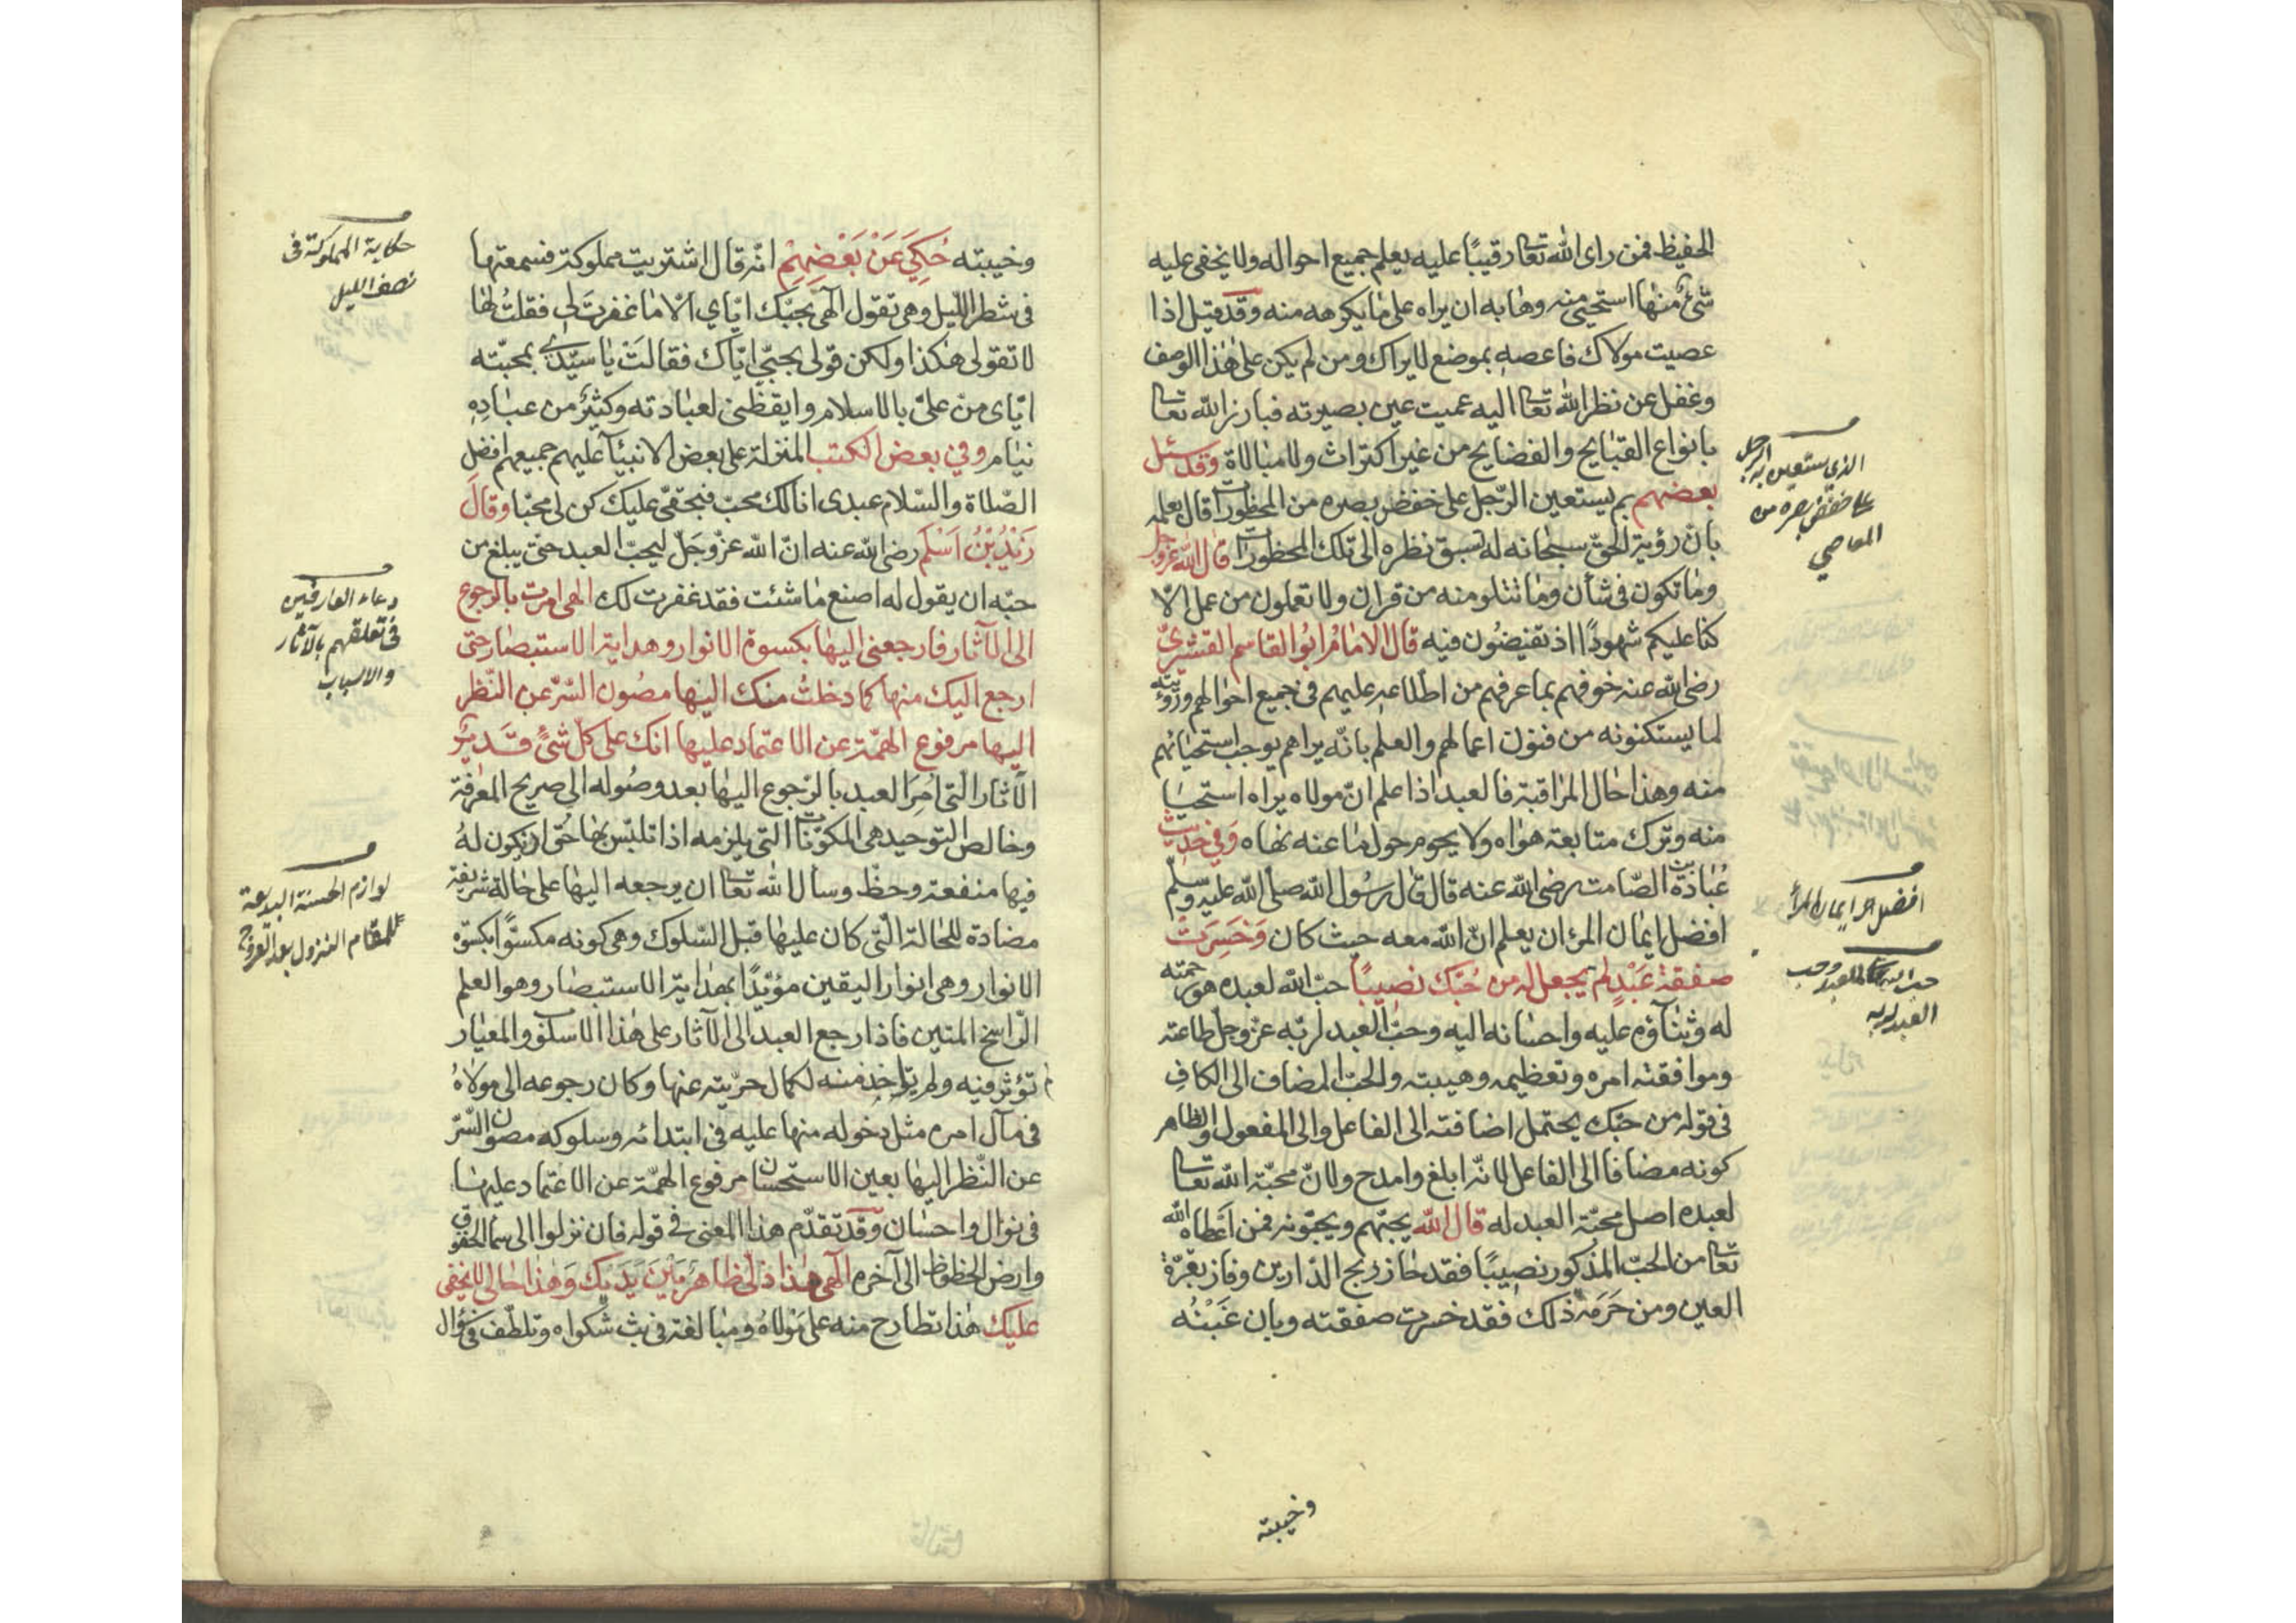 الحفيظ فمن راى الله تعالى رقيبًا عليه يعلم جميع احواله ولا يخفى عليه
شئ منها استحيى منه وهابه ان يراه على ما يكرهه منه وقد قيل اذا
عصيت مولاك فاعصه بموضع لا يراك ومن لم يكن على هذا الوصف
وغفل عن نظر الله تعالى اليه عميت عين بصيرته فبارز الله تعالى
بانواع القبايح والفضايح من غير اكتراث ولا مبالاة وقد سئل
بعضهم بم يستعين الرّجل على خفض بصره من المحظورات قال بعلمه
بانّ رؤية الحقّ سبحانه له تسبق نظره الى تلك المحظورات قال الله عز وجل
وما تكون فى شأن وما تتلو منه من قران ولا تعملون من عمل الّا
كنا عليكم شهودًا اذ تفيضون فيه قال الامام ابو القاسم القشيرى
رضى الله عنه خوفهم بما عرفهم من اطلاعه عليهم فى جميع احوالهم ورؤيته
لما يستكنونه من فنون اعمالهم والعلم بانّه يراهم يوجب استحيائهم
منه وهذا حال المراقبة فالعبد اذا علم انّ مولاه يراه استحيا
منه وترك متابعة هواه ولا يحوم حول ما عنه نهاه وفى حديث
عُبادة بن الصّامت رضى الله عنه قال قال رسول الله صلى الله عليه وسلم
افضل ايمان المرء ان يعلم انّ الله معه حيث كان وخسرت
صفقة عبدٍ لم يجعل له من حبّك نصيبًا حبّ الله لعبده هو رحمته
له وثنآؤه عليه واحسانه اليه وحبّ العبد لربّه عزّ وجلّ طاعته
وموافقته امره وتعظيمه وهيبته والحبّ المضاف الى الكاف
فى قوله من حبّك يحتمل اضافته الى الفاعل والى المفعول والظاهر
كونه مضافا الى الفاعل لانّه ابلغ وامدح ولانّ محبّة الله تعالى
لعبده اصل محبّة العبد له قال الله يحبّهم ويحبّونه فمن اعطاه الله
تعالى من الحبّ المذكور نصيبًا فقد حاز ربح الدّارين وفاز بقرّة
العين ومن حرمه ذلك فقد خسرت صفقته وبان غبنه
وخيبته
الرجل
الذى يستعين به
على خفض بصره من
المعاصى
افضل ايمان المرأ
حب الله تعالى للعبد وحب
العبد لربه
وخيبته حُكِيَ عَنْ بَعْضِهِمْ انّه قال اشتريت مملوكة فسمعتها
فى شطر اللّيل وهى تقول الٓهى بحبّك ايّاي الّا ما غفرت لى فقلتُ لها
لا تقولى هكذا ولكن قولى بحبّي ايّاك فقالتْ يا سيّدي بمحبّته
ايّاى منّ علىّ بالاسلام وايقظنى لعبادته وكثيرٌ من عبادِهِ
نيام وفي بعض الكتب المنزلة على بعض الانبيآء عليهم جميعهم افضل
الصّلاة والسّلام عبدى انا لك محبّ فبحقّى عليك كن لى محبّا وقال
زَيْدُ بْنُ اَسْلَم رضى الله عنه انّ الله عزّ وجلّ ليحبّ العبد حتّى يبلغ من
حبّه ان يقول له اصنع ما شئت فقد غفرت لك الهى امرت بالرجوع
الى الآثار فارجعنى اليها بكسوة الانوار وهداية الاستبصار حتى
ارجع اليك منها كما دخلتُ منك اليها مصون السّرّ عن النّظر
اليها مرفوع الهمّة عن الاعتماد عليها انك على كلّ شئ قدير
الآثار التى اُمِرَ العبد بالرّجوع اليها بعد وصوله الى صريح المعرفة
وخالص التوحيد هى المكوّنات التى يلزمه اذا تلبّس بها حُقّ او يكون لهُ
فيها منفعة وحظّ وسأل الله تعالى ان يرجعه اليها على حالة شريفة
مضادة للحالة الّتى كان عليها قبل السّلوك وهى كونه مكسوًّا بكسوة
الانوار وهى انوار اليقين مؤيّدًا بهداية الاستبصار وهو العلم
الرّاسخ المتين فاذا رجع العبد الى الآثار على هذا الاسلوب والمعيار
لم تؤثر فيه ولم يؤاخذ منه لكمال حرّيته عنها وكان رجوعه الى مولاهُ
فى مآل امره مثل دخوله منها عليه فى ابتدائه وسلوكه مصون السّرّ
عن النّظر اليها بعين الاستحسان مرفوع الهمّة عن الاعتماد عليها
فى نوال واحسان وقد تقدّم هذا المعنى فى قوله فان نزلوا الى سماء الحقوق
وارض الحظوظ الى آخره الٓهى هذا ذلّى ظاهر بين يديك وهذا حالى لا يخفى
عليك هذا تطارح منه على مولاهُ ومبالغة فى بث شكواه وتلطّف فى سؤال
حكاية المملوكة فى
نصف الليل
دعاء العارفين
فى تعلقهم بالآثار
والاسباب
لوازم الحسنة البديعة
للمقام النزول بعد العروج